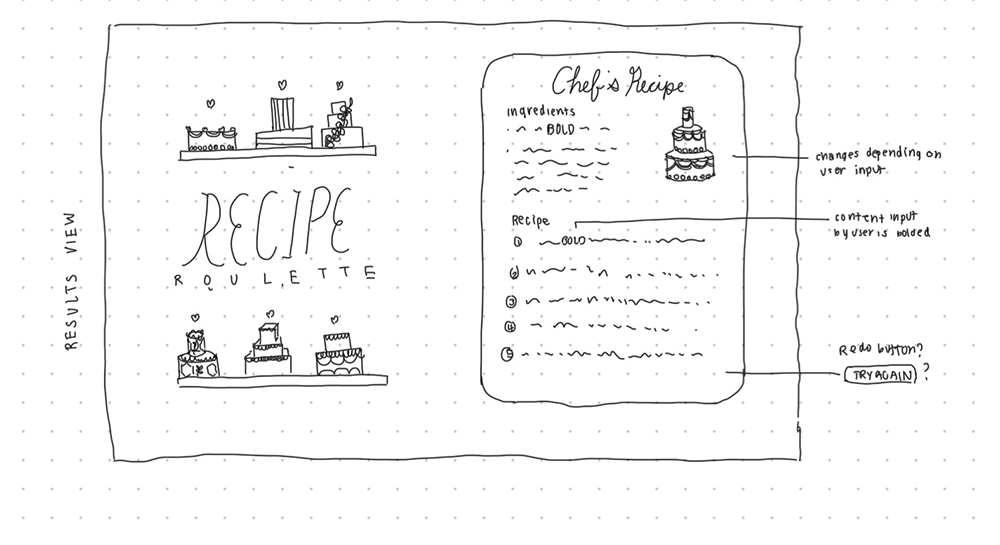 RESULTS VIEW
RECIPE
ROULETTE
Chef's Recipe
ingredients
BOLD
Recipe
1 BOLD
2
3
4
5
changes depending on
user input
content input
by user is bolded
Redo button?
TRY AGAIN ?